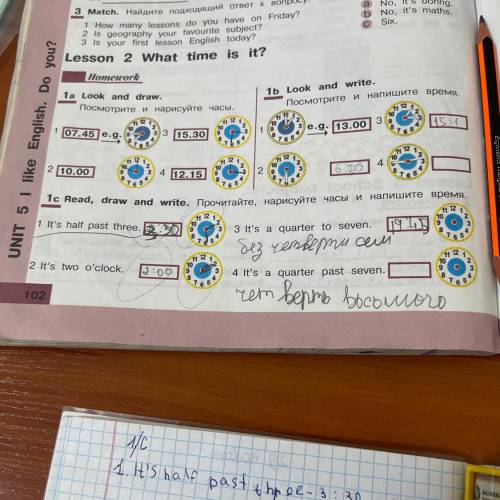 3 Match. Найдите подходящий ответ к вопросу.
1 How many lessons do you have on Friday?
2 Is geography your favourite subject?
3 Is your first lesson English today?
a No, it's boring.
b No, it's maths.
c Six.
Lesson 2 What time is it?
Homework
1a Look and draw.
Посмотрите и нарисуйте часы.
1 07.45 e.g.
3 15.30
2 10.00
4 12.15
1b Look and write.
Посмотрите и напишите время.
1 e.g. 13.00
3
2
4
1c Read, draw and write. Прочитайте, нарисуйте часы и напишите время.
1 It's half past three. 3:30
3 It's a quarter to seven.
без четверти сем
2 It's two o'clock. 2:00
4 It's a quarter past seven.
четверть восьмого
UNIT 5 I like English. Do you?
102
1/с
1. It's half past three - 3:30